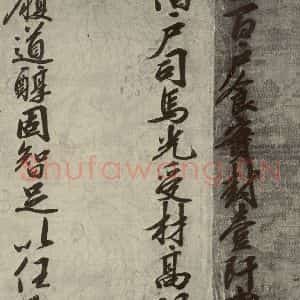 百户食實封壹阡
百户司馬光受材高
履道醇固智足以任
shufawang.cn